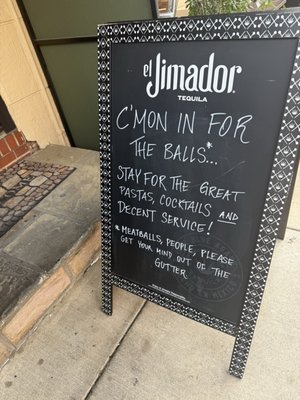 el Jimador
TEQUILA
C'MON IN FOR
THE BALLS...*
STAY FOR THE GREAT
PASTAS, COCKTAILS AND
DECENT SERVICE!
* MEATBALLS, PEOPLE, PLEASE
GET YOUR MIND OUT OF THE
GUTTER